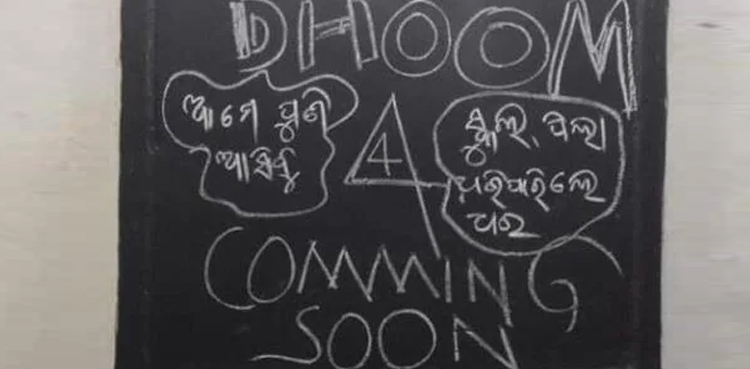 DHOOM
ଆମେ ପୁଣି
ଆସିବୁ
4
ସ୍କୁଲ, ପିଲା
ଧରିପାରିଲେ
ଧର
COMMING
SOON